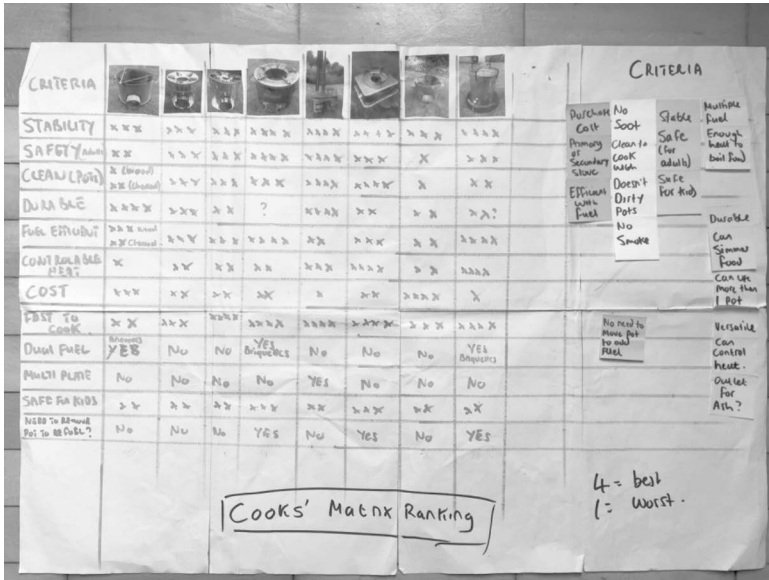 CRITERIA
STABILITY xxx xxx xxx xxxx xxxx xxxx xxx xxxx
SAFETY xx xxx xxx xxxx xxxx xxx x xxx
CLEAN (POTS) xx xxx xx xxx xxxx xxxx x xx
DURABLE xxxx xxx xx ? xxxx xx xx xx?
FUEL EFFICIENT
xx Charcoal xxx xxx xxxx xx xxx xx xxxx
CONTROLABLE
HEAT x xx xx xx xxx xxxx xx xxxx
COST xxx xx xx xx x xx xxxx x
FAST TO
COOK xx xxx xxxx xxxx xxxx xxxx xxx xxxx
DUAL FUEL Briquettes YES No No YES Briquettes No No No YES Briquettes
MULTI PLATE No No No No YES No No No
SAFE FOR KIDS xx xx xx xxx xx xxx xx xx
NEED TO REMOVE
POT TO REFUEL? No No No YES No Yes No YES
Cooks' Matrix Ranking
CRITERIA
Purchase
Cost
Primary
or
Secondary
Stove
Efficient
with
fuel
No
Soot
Clean to
Cook
with
Doesn't
Dirty
Pots
No
Smoke
Stable
Safe
(for
adults)
Safe
for kids
Multiple
fuel
Enough
heat to
boil food
Durable
Can
Simmer
food
Can use
more than
1 Pot
No need to
move pot
to add
fuel
Versatile
Can
control
heat.
Outlet
for
Ash?
4 = best
1 = worst.